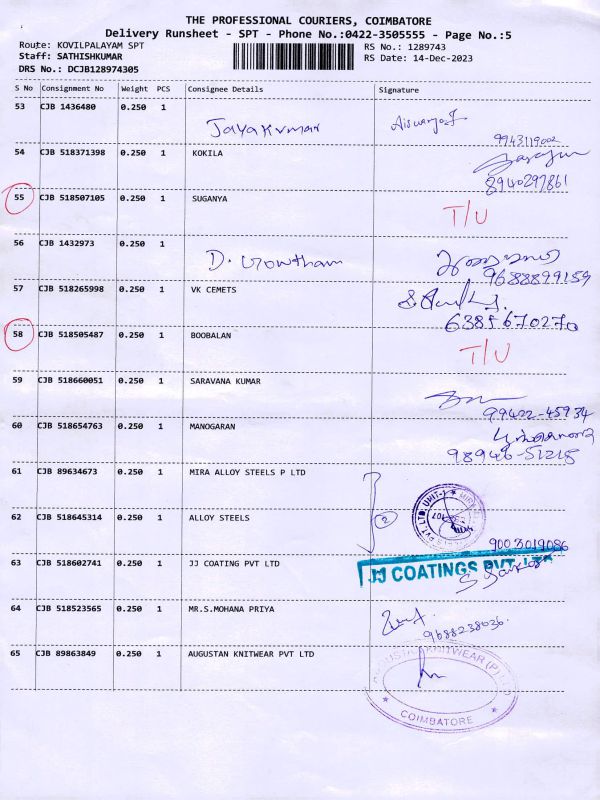 THE PROFESSIONAL COURIERS, COIMBATORE
Delivery Runsheet - SPT - Phone No.:0422-3505555 - Page No.:5
Route: KOVILPALAYAM SPT
RS No.: 1289743
Staff: SATHISHKUMAR
RS Date: 14-Dec-2023
DRS No.: DCJB128974305
S No Consignment No Weight PCS Consignee Details Signature
53 CJB 1436480 0.250 1 Jayakumar
9943119002
54 CJB 518371398 0.250 1 KOKILA
8940297861
55 CJB 518507105 0.250 1 SUGANYA T/U
56 CJB 1432973 0.250 1 D. Gowtham
9688899159
57 CJB 518265998 0.250 1 VK CEMETS
6385670270
58 CJB 518505487 0.250 1 BOOBALAN T/U
59 CJB 518660051 0.250 1 SARAVANA KUMAR
99422-45934
60 CJB 518654763 0.250 1 MANOGARAN
98946-51218
61 CJB 89634673 0.250 1 MIRA ALLOY STEELS P LTD
2
62 CJB 518645314 0.250 1 ALLOY STEELS
9003019086
63 CJB 518602741 0.250 1 JJ COATING PVT LTD JJ COATINGS PVT. LTD
64 CJB 518523565 0.250 1 MR.S.MOHANA PRIYA
9688238036
65 CJB 89863849 0.250 1 AUGUSTAN KNITWEAR PVT LTD
KNITWEAR (P) LTD
COIMBATORE